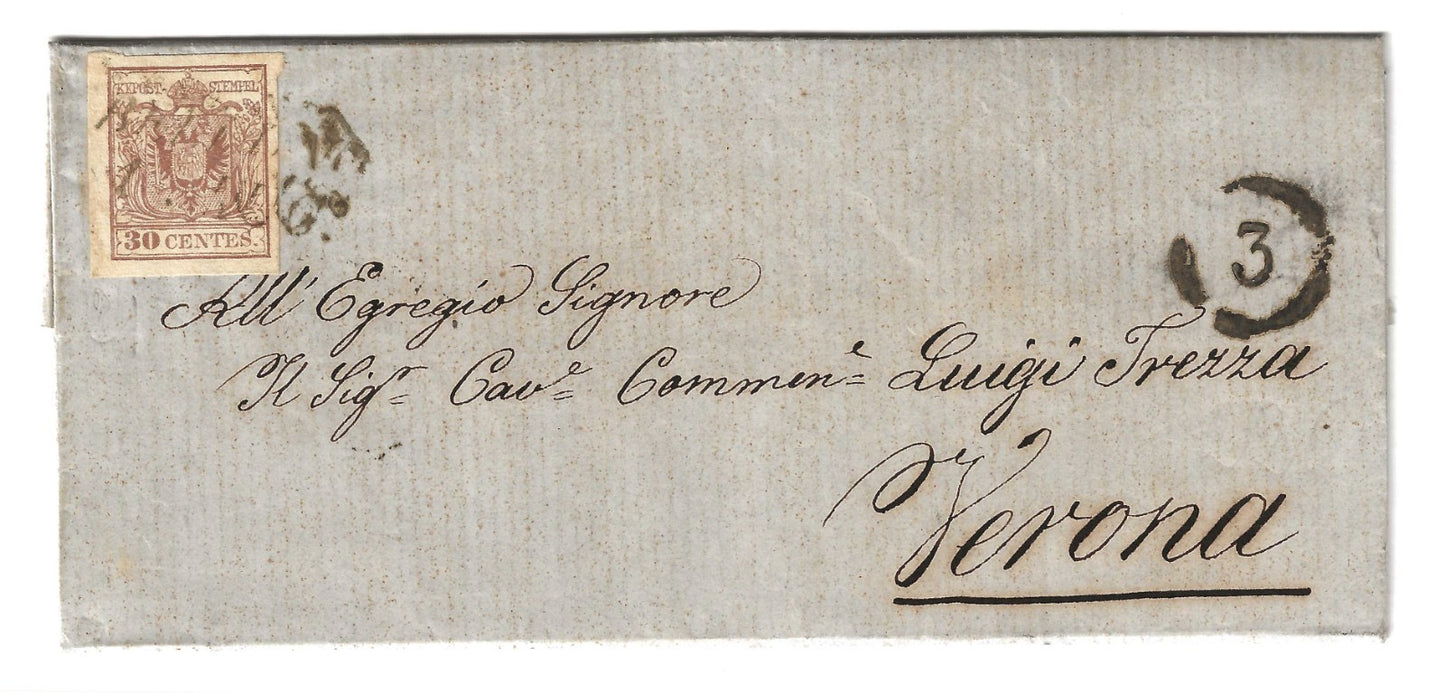 KKPOST-STEMPEL
30 CENTES.
3
All' Egregio Signore
Il Sigr Cave Commene Luigi Trezza
Verona